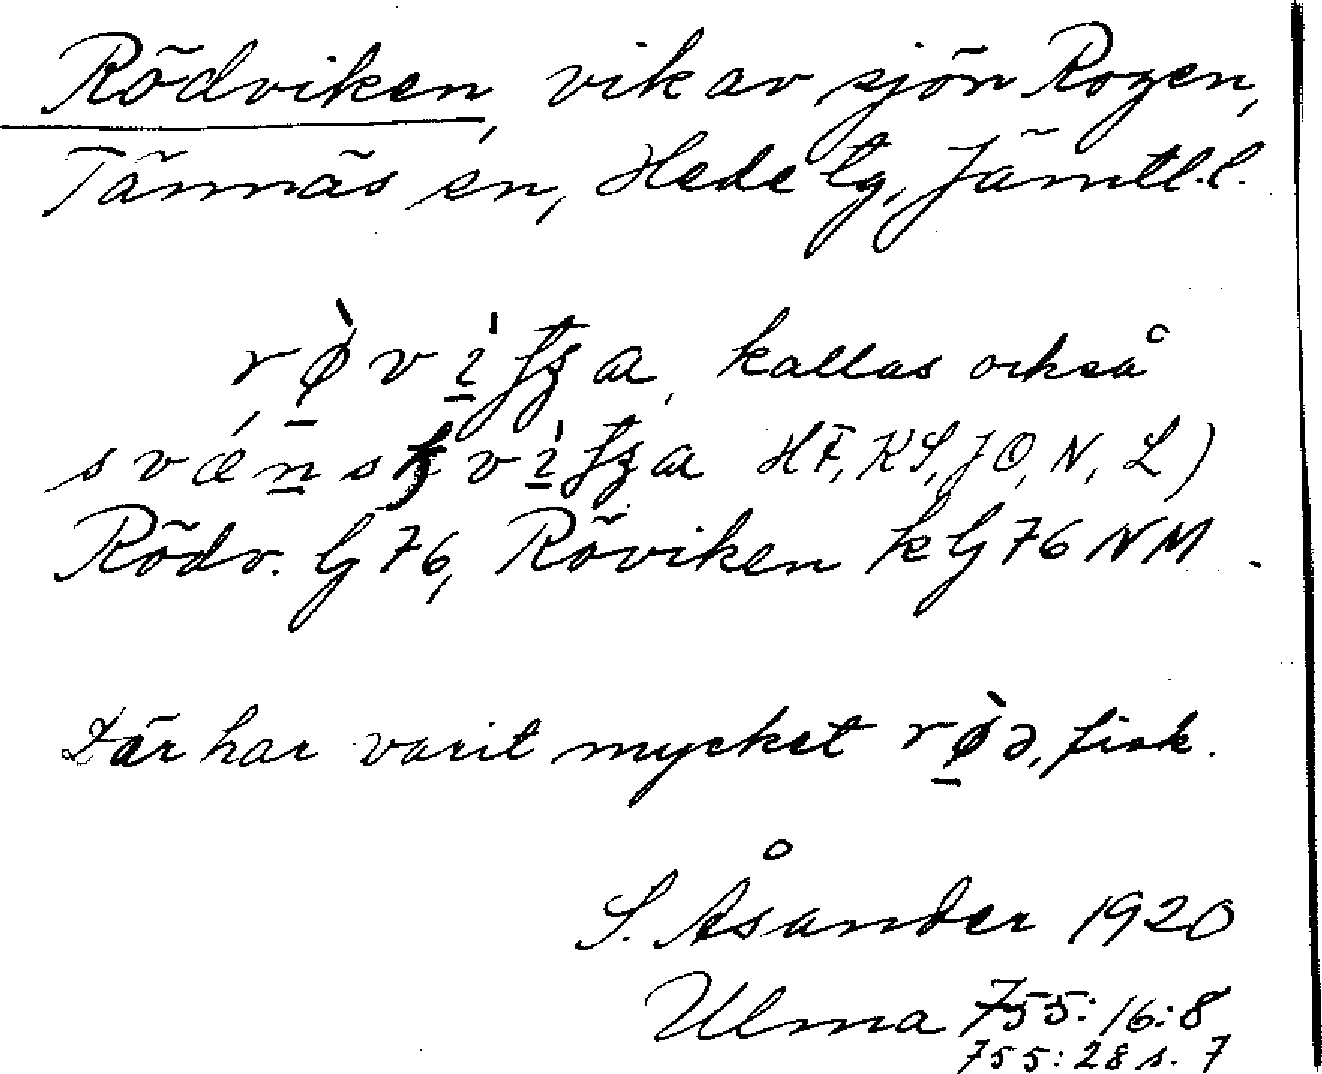 Rödviken, vik av sjön Rogen,
Tännäs sn, Hede tg, Jämtl.l.
kallas också
HF, KS, JO, N, L)
Rödv. G 76, Röviken k G 76 NM.
Där har varit mycket rø̀ə, fisk.
S. Åsander 1920
Ulma 755:16:8
755:28 s. 7